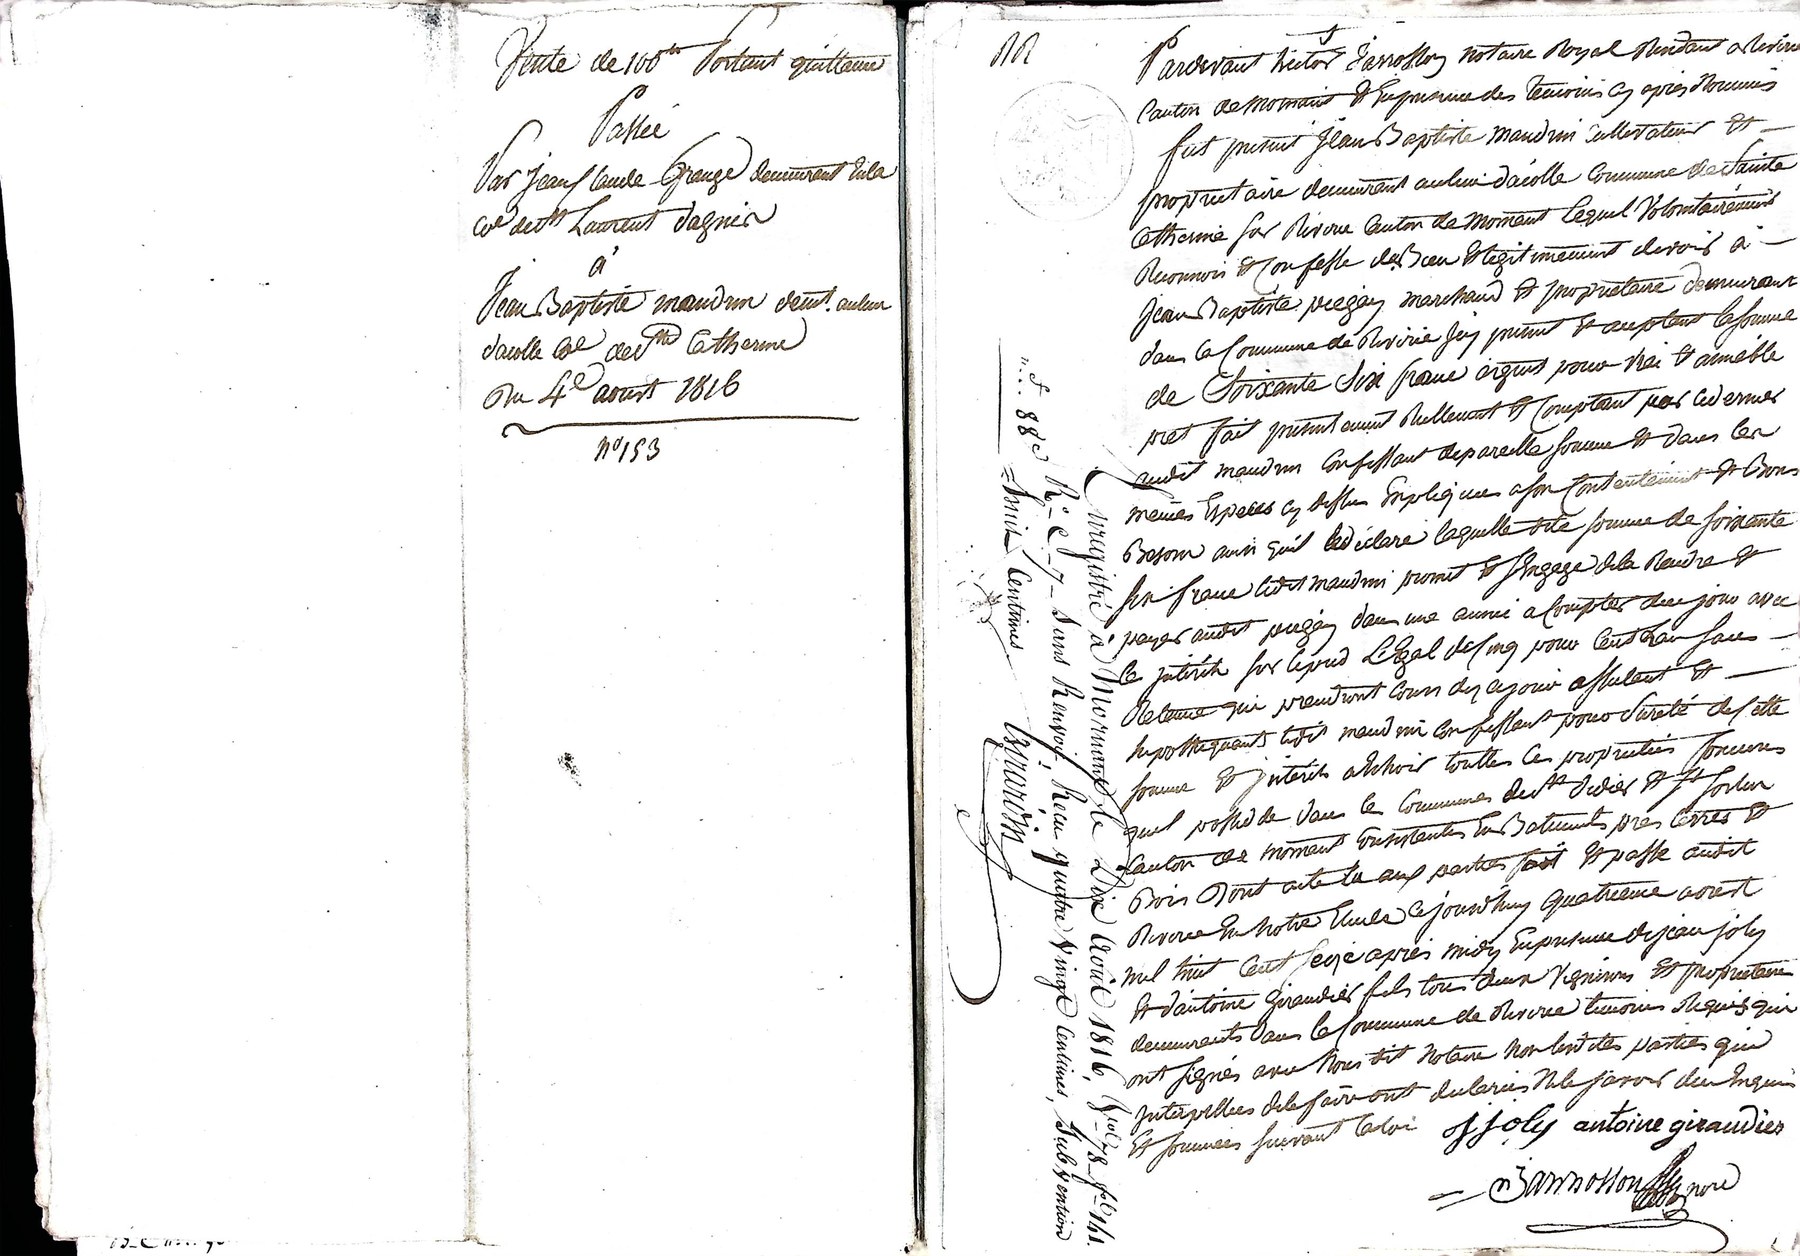 Vente de 100 tt Portant quittance
Passée
Par Jean Claude Grange demeurant en la
cne de St Laurent dagnis
à
Jean Baptiste maudrin demt. au lieu
dacolle Cne de Ste Catherine
Du 4e aoust 1816
no 153
Pardevant hector Jarrosson notaire Royal Résidant a Riverie
Canton de Mornant Et En presence des temoins cy après Nommés
fut present Jean Baptiste maudrin cultivateur Et
proprietaire demeurant au lieu dacolle Commune de Sainte
Catherine sur Riverie Canton de Mornant lequel Volontairement
Reconnois Et Confesse de Bien Et legitimement devoir à
Jean Baptiste marchand Et proprietaire demeurant
dans la Commune de Riverie Icy present Et aceptant la somme
de Soixante Six franc argent pour vrai Et amiable
pret fait presentement Rellement Et Comptant par ce dernier
audit maudrin Confessant de pareille somme Et dans les
mêmes Especes cy dessus Expliquées a son Contentement Et Bons
Besoin ainsi quil le déclare laquelle dite somme de soixante
six franc ledit maudrin promet Et s'Engage de la Rendre Et
payer audit dans une année a Compter de ce jour avec
le intérêts sur le pied Légal de Cinq pour Cent lan sans
Retenue qui prendront Cours dez ce jour assulent Et
hypothequant ledit maudrin Confessant pour sureté de cette
somme Et intérêts a Echoir touttes les proprietés foncieres
quil possede dans les Communes de St Didier Et St Sorlin
Canton de Mornant Consistantes En Batiments pres terres Et
Bois Dont acte lu aux parties fait Et passé audit
Riverie En Notre Etude Ce jourdhuy quatrieme aoust
mil huit Cent Seize après midy En presence de jean joly
Et dantoine giraudier fils tous deux Vignerons Et proprietaires
demeurants dans la Commune de Riverie temoins Requis qui
ont signés avec Nous dit Notaire Non lesdites parties qui
Interpellées de le faire ont declarées Ne le savoir de ce Enquis
Et sommées suivant la loi
J joly antoine giraudier
Jarrosson nore
Enregistré à Mornant le Dix Août 1816, fol. 78
Ro C. 7 Sans Renvoi, Recu quatre Vingt Centimes, Subvention
huit Centimes
88 c